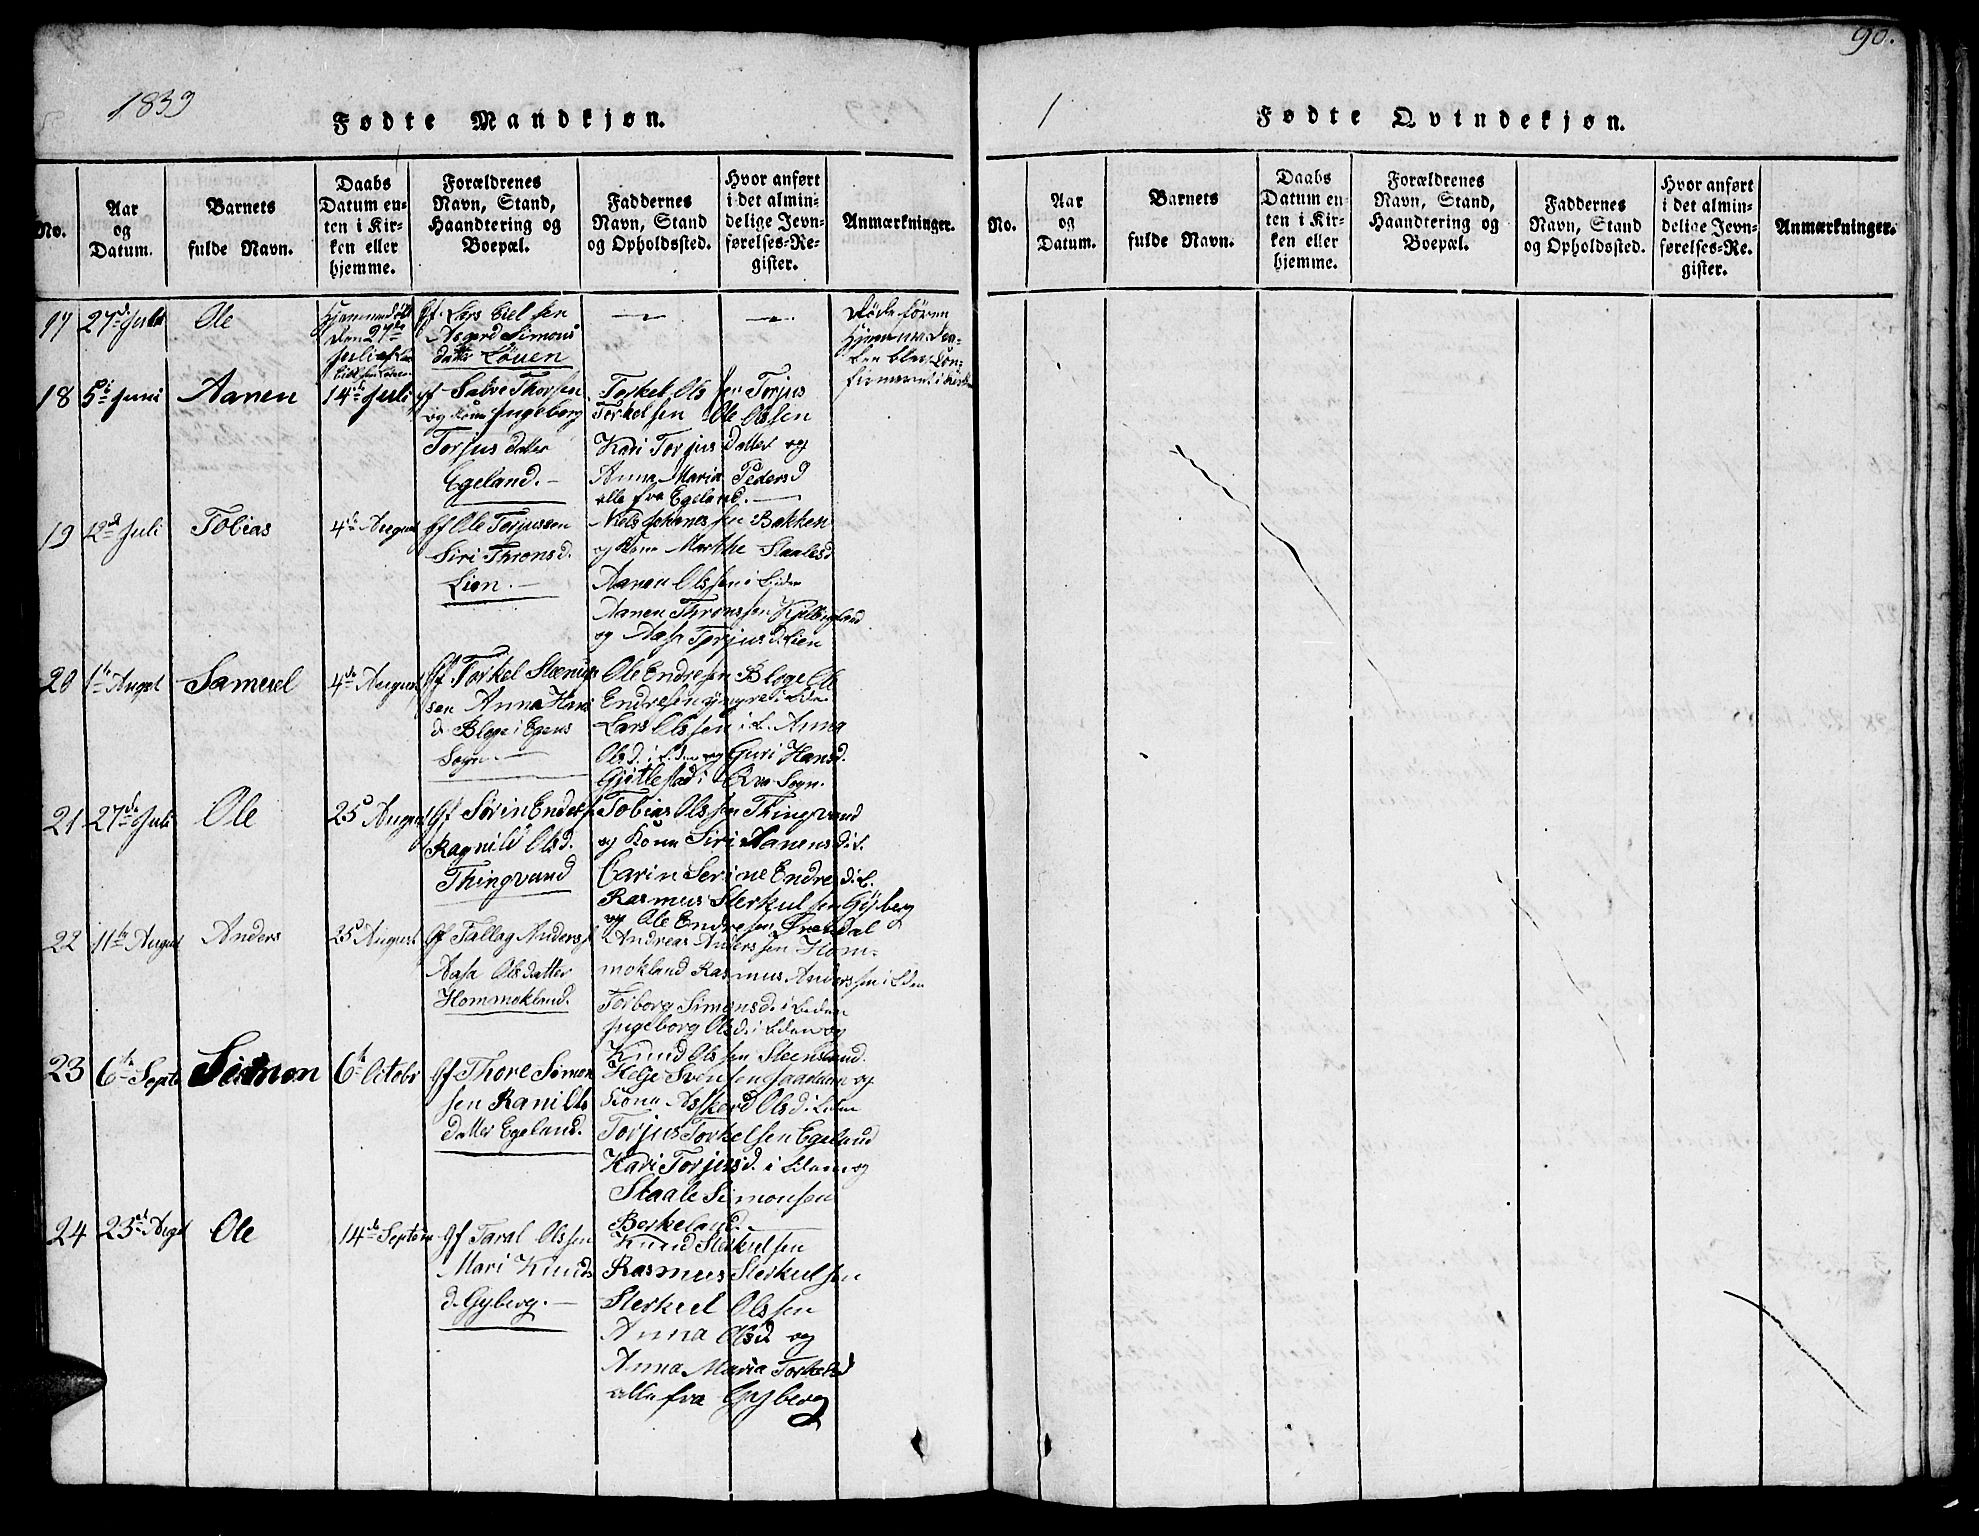 1839
Fødte Mandkjøn.
No.
Aar
og
Datum.
Barnets
fulde Navn.
Daabs
Datum en-
ten i Kir-
ken eller
hjemme.
Forældrenes
Navn, Stand,
Haandtering og
Boepæl.
Faddernes
Navn, Stand
og Opholdssted.
Hvor anført
i det almin-
delige Jevn-
førelses-Re-
gister.
Anmærkninger.
17
27de Juli
Ole
Hjemmedøbt
den 27de
Juli af
Gf. Lars Eielsen
Asgerd Simons
datter Løuen
Døde føren
18
5te Juni
Aanen
14de Juli
Gf Salve Thorsen
og Kone Ingeborg
Torjus datter
Egeland.
Torkel Olssen Torjus
Torkelsen Ole Olssen
Kari Torjus Datter og
Anna Maria Pedersd
alle fra Egeland.
19
12te Juli
Tobias
4de August
Gf Ole Torjussen
Siri Thronsd.
Lien.
Niels Johannessen Bakken
og Kone Marthe Staalesd
Aanen Olssen i Liden
Aanen Thronssen
og Aasa Torjusd. Lien
20
1te Augst
Samuel
4de August
Gf Torkel Steenis
sen Anna Hans
d. Bloge i Egens
Sogn.
Ole Endresen Bloge Ole
Endresen yngre i Liden
Lars Olssen i L. Anna
Olsd. i Liden og Guri Hansd.
Gjetlestad i Qva Sogn.
21
27de Juli
Ole
25d August
Gf Sørin Endres.
Ragnild Olsd.
Thingvand
Tobias Olssen Thingvand
og Kone Siri Aanensd. i L.
Carin Serine Endresd. i L.
Rasmus Sterkulsen Gyberg
og Ole Endresen
22
11te August
Anders
25d August
Gf Tallag Anders
Aasa Olsdatter
Hommokland.
Andreas Anderssen Hom-
mokland Rasmus Anderssen i Liden
Torborg Simonsd. i Leden
Ingeborg Olsd. i Liden og
Knud Olssen Steensland.
23
6te Septe
Simon
6te Octobr
Gf Thore Simon
sen Rani Ols
datter Egeland.
Helje Svensen og
Kone Asskerd Olsd. i Liden
Torjus Torkelsen Egeland
Kari Torjusd. i Liden og
Staale Simonsen
Berkeland.
24
23de Augst
Ole
14de Septem
Gf Taral Olssen
Mari Knuds
d. Gyberg.
Knud Sterkulsen
Rasmus Sterkulsen
Sterkuel Olssen
Anna Olsd og
Anna Maria Torkelsd
alle fra Gyberg
90.
Fødte Qvindekjøn.
No.
Aar
og
Datum.
Barnets
fulde Navn.
Daabs
Datum en-
ten i Kir-
ken eller
hjemme.
Forældrenes
Navn, Stand,
Haandtering og
Boepæl.
Faddernes
Navn, Stand
og Opholdssted.
Hvor anført
i det almin-
delige Jevn-
førelses-Re-
gister.
Anmærkninger.